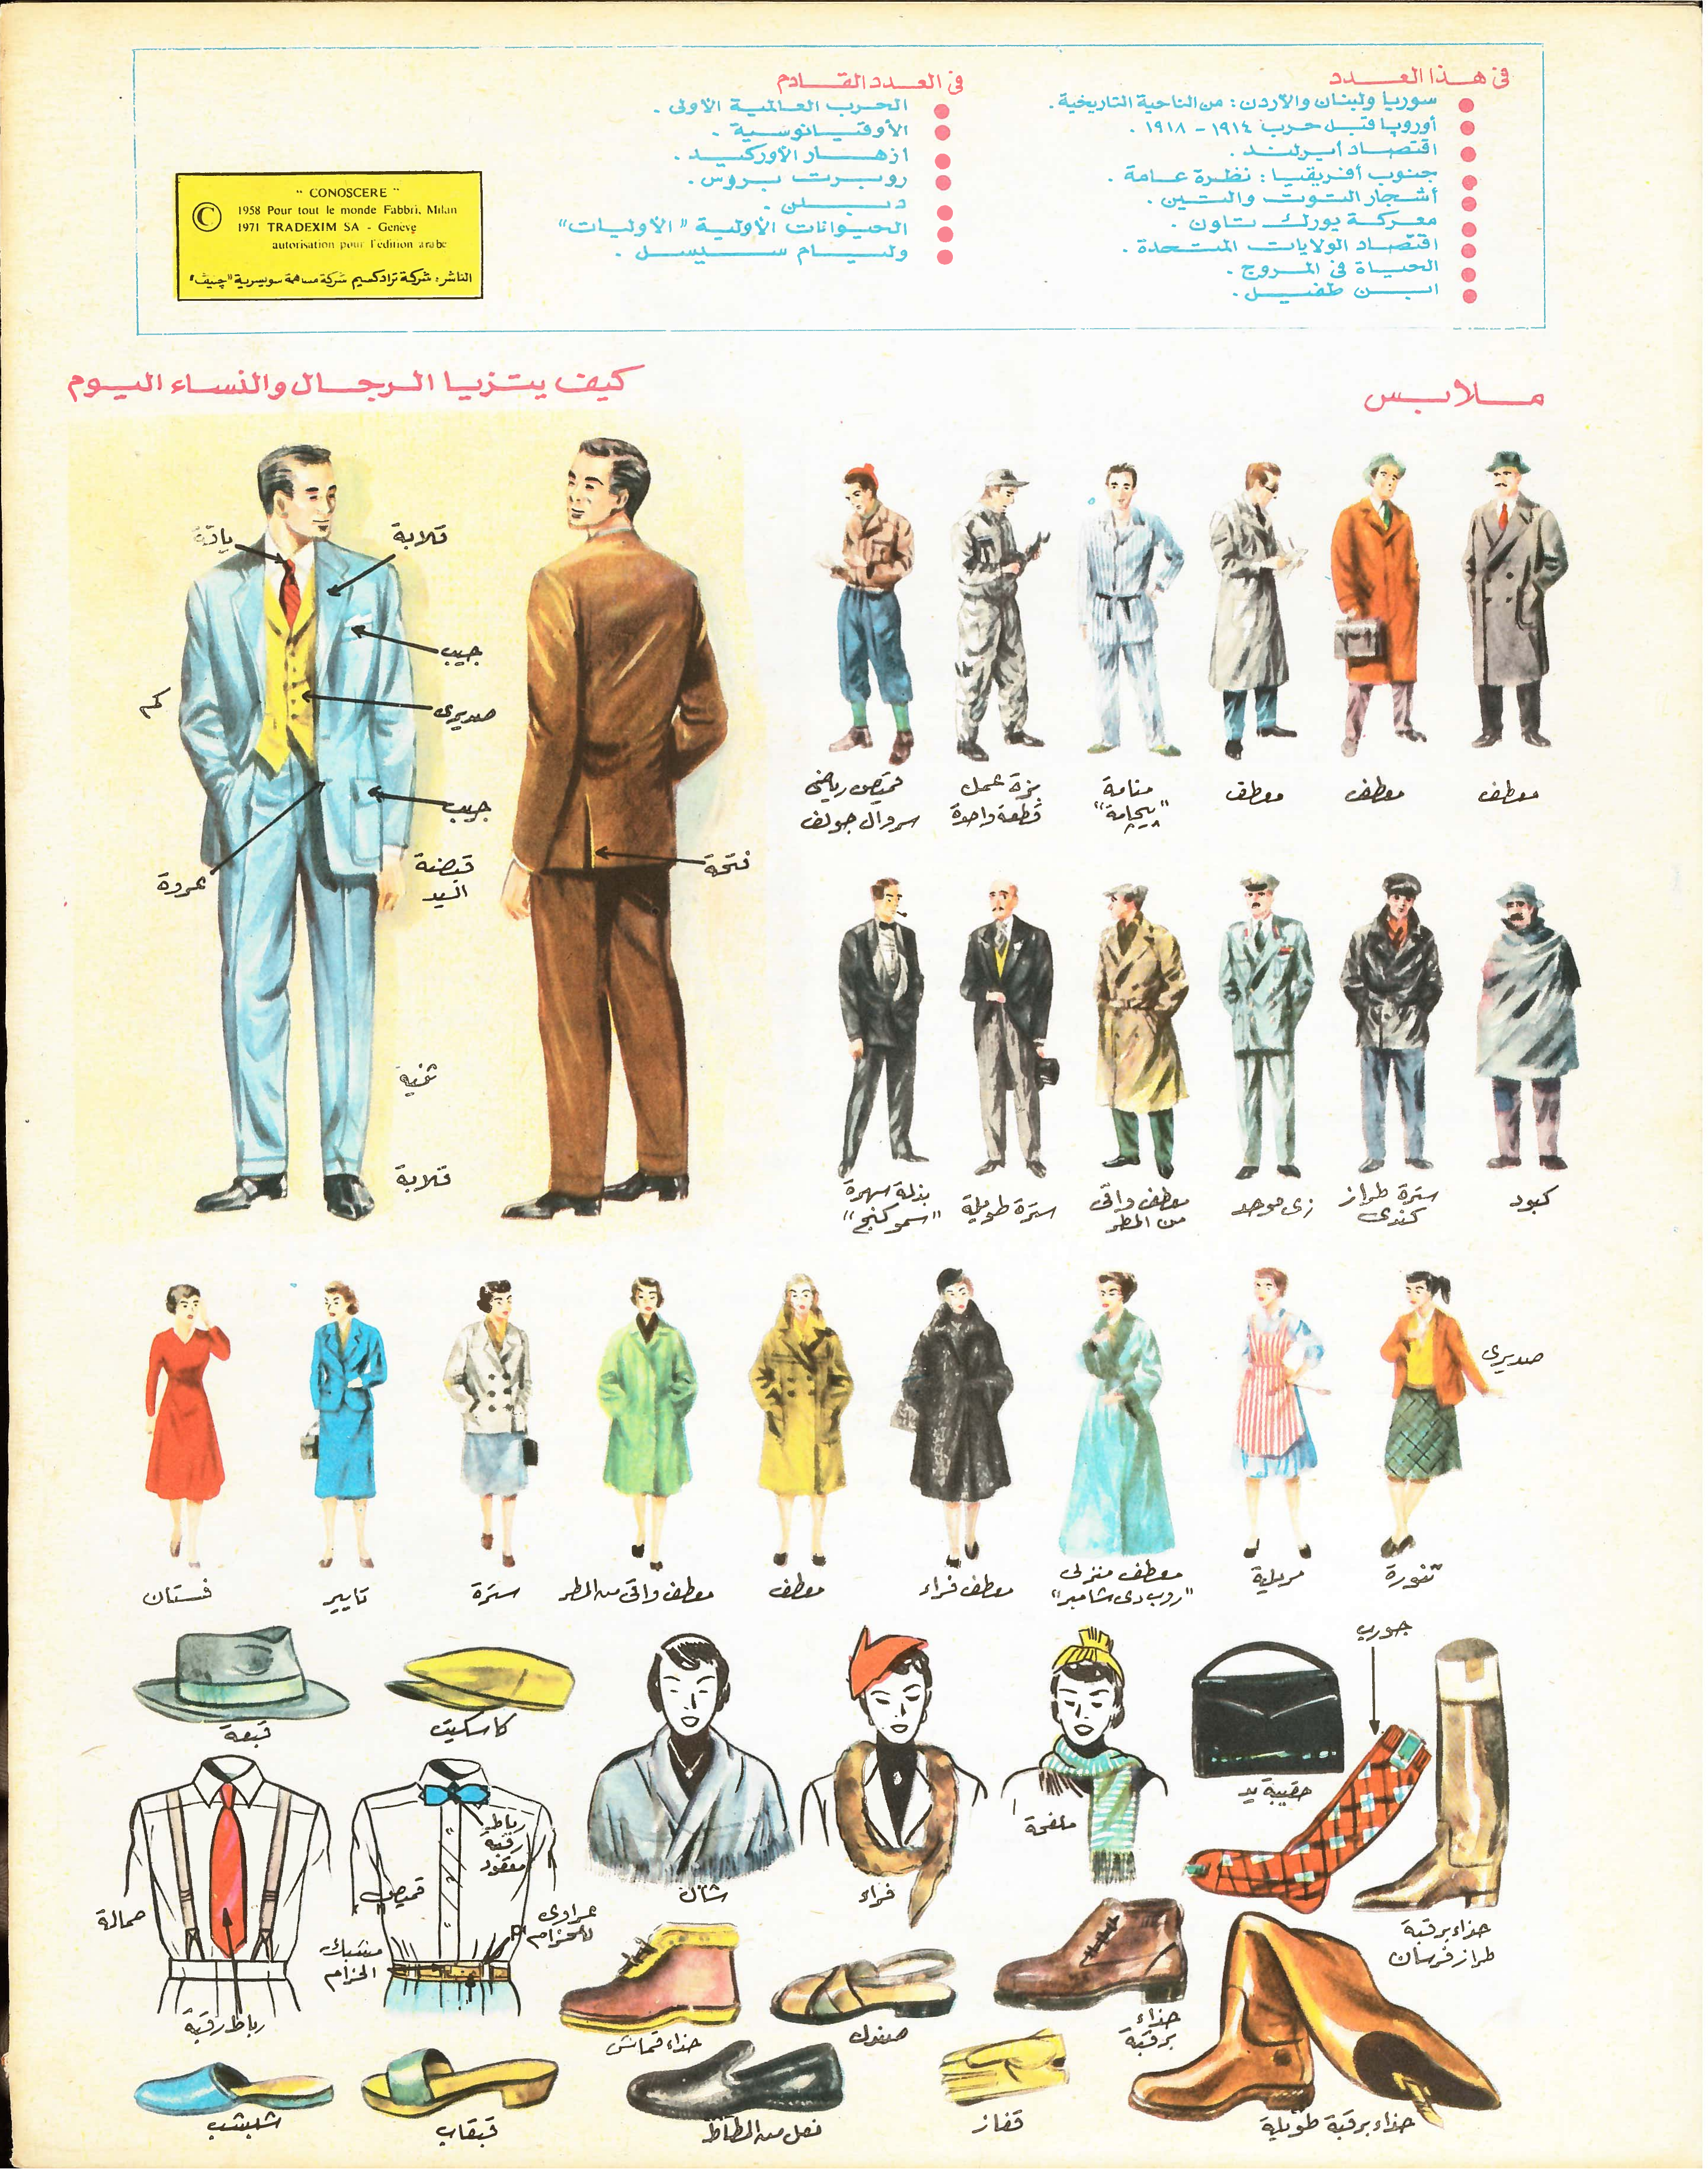 فى هذا العدد
سوريا ولبنان والأردن : من الناحية التاريخية .
أوروبا قبل حرب ١٩١٤ - ١٩١٨ .
اقتصاد أيرلند .
جنوب أفريقيا : نظرة عامة .
أشجار التوت والتين .
معركة يورك تاون .
اقتصاد الولايات المتحدة .
الحياة فى المروج .
ابن طفيل .
فى العدد القادم
الحرب العالمية الأولى .
الأوقيانوسية .
ازهار الأوركيد .
روبرت بروس .
دبلن .
الحيوانات الأولية "الأوليات"
وليام سيسل .
" CONOSCERE "
© 1958 Pour tout le monde Fabbri, Milan
1971 TRADEXIM SA - Genève
autorisation pour l'edition arabe
الناشر : شركة ترادكسيم شركة مساهمة سويسرية "چنيف"
ملابس
كيف يتزيا الرجال والنساء اليوم
ياقة
قلابة
جيب
صديرى
كم
جيب
قبضة
اليد
عروة
فتحة
ثنية
قلابة
معطف
معطف
معطف
منامة
"بيجامة"
بزة عمل
قطعة واحدة
قميص رياضى
سروال جولف
كبود
سترة طراز
كندى
زى موحد
معطف واقى
من المطر
سترة طويلة
بذلة سهرة
"سموكنج"
صديرى
تنورة
مريلة
معطف منزلى
"روب دى شامبر"
معطف فراء
معطف
معطف واقى من المطر
سترة
تايير
فستان
جورب
حقيبة يد
حذاء برقبة
طراز فرسان
ملفحة
فراء
شال
كاسكيت
قبعة
رباط
رقبة
معقود
قميص
عراوى
للحزام
مشبك
الحزام
حمالة
رباط رقبة
حذاء قماش
صندل
حذاء
برقبة
حذاء برقبة طويلة
قفاز
نعل من المطاط
قبقاب
شبشب